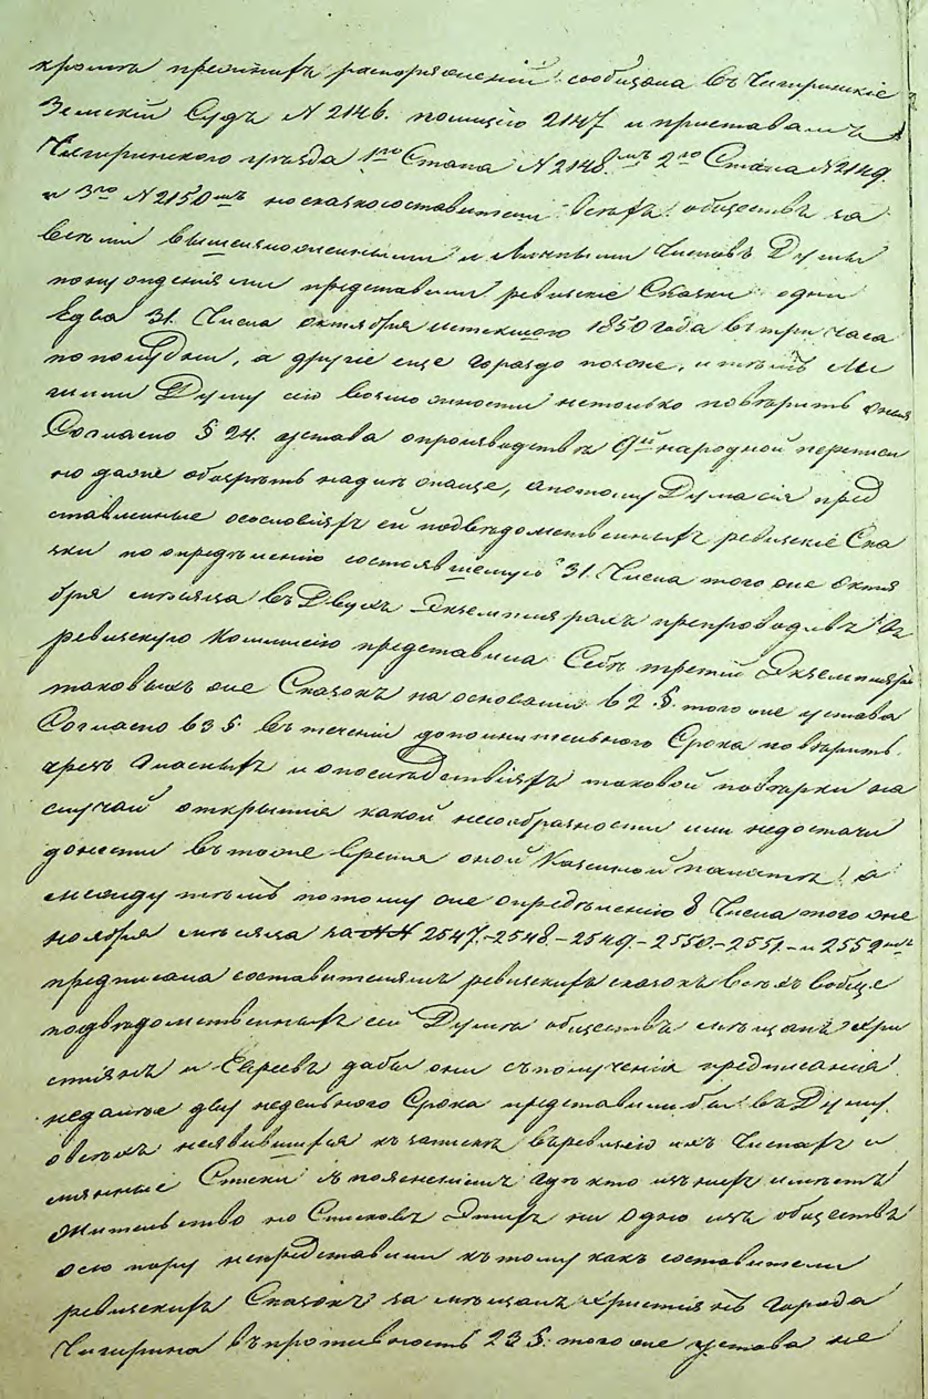 кромѣ прежнихъ распоряженій сообщала въ Чигиринскіе
Земскій Судъ N 2146. полицію 2147 и приставамъ
Чигиринскаго уѣзда 1го Стана N 2148.мъ 2го Стана N 2149.
и 3го N 2150мъ но сказкосоставители всѣхъ обществъ за
всѣми вышеизложенными и личными Членовъ Думы
понужденіями представили ревизскіе Сказки одни
Едва 31. Числа октября истекшого 1850 года въ три часа
по полудни, а другіе еще гораздо позже, и тѣмъ ли
шили Думу сію возможности нетолько повѣрить оныя
Согласно § 24. устава о производствѣ 9й народной переписи
но даже обозрѣть надлежаще, а потому Дума сія пред
ставленные о сословіяхъ ей подвѣдомственныхъ ревизскіе Ска
зки по опредѣленію состоявшемуся 31. Числа того же Октя
бря мѣсяца въ Двухъ Экземплярахъ препроводивъ въ
ревизскую Коммисію представила Себѣ третій Экземпляръ
таковыхъ же Сказокъ на основаніи 62 §. того же устава
Согласно 63 §. въ теченіи дополнительного Срока повѣрить
чрезъ Гласныхъ и о послѣдствіяхъ таковой повѣрки на
случай открытія какой несообразности или недостачи
донести въ тоже время оной Казенной палатѣ, а
между тѣмъ потому же опредѣленію 8 Числа того же
ноября мѣсяца за NN 2547.-2548.-2549.-2550.-2551.-и 2552мъ
предписала составителямъ ревизскихъ сказокъ всѣхъ вобще
подвѣдомственныхъ сей Думѣ обществъ мѣщанъ хри
стіянъ и Евреевъ дабы они съ полученія предписанія
недалѣе двунедельного Срока представили бы въ Думу.
о всѣхъ неявившихся къ запискѣ въ ревизію ихъ Членахъ и
мянные Списки съ поясненіемъ гдѣ кто изъ нихъ имѣетъ
жительство но Списковъ Этихъ ни Одно изъ обществъ
осю пору непредставили къ тому какъ составители
ревизскихъ Сказокъ за мѣщанъ христіянъ города
Чигирина въ противность 23 §. того же устава не